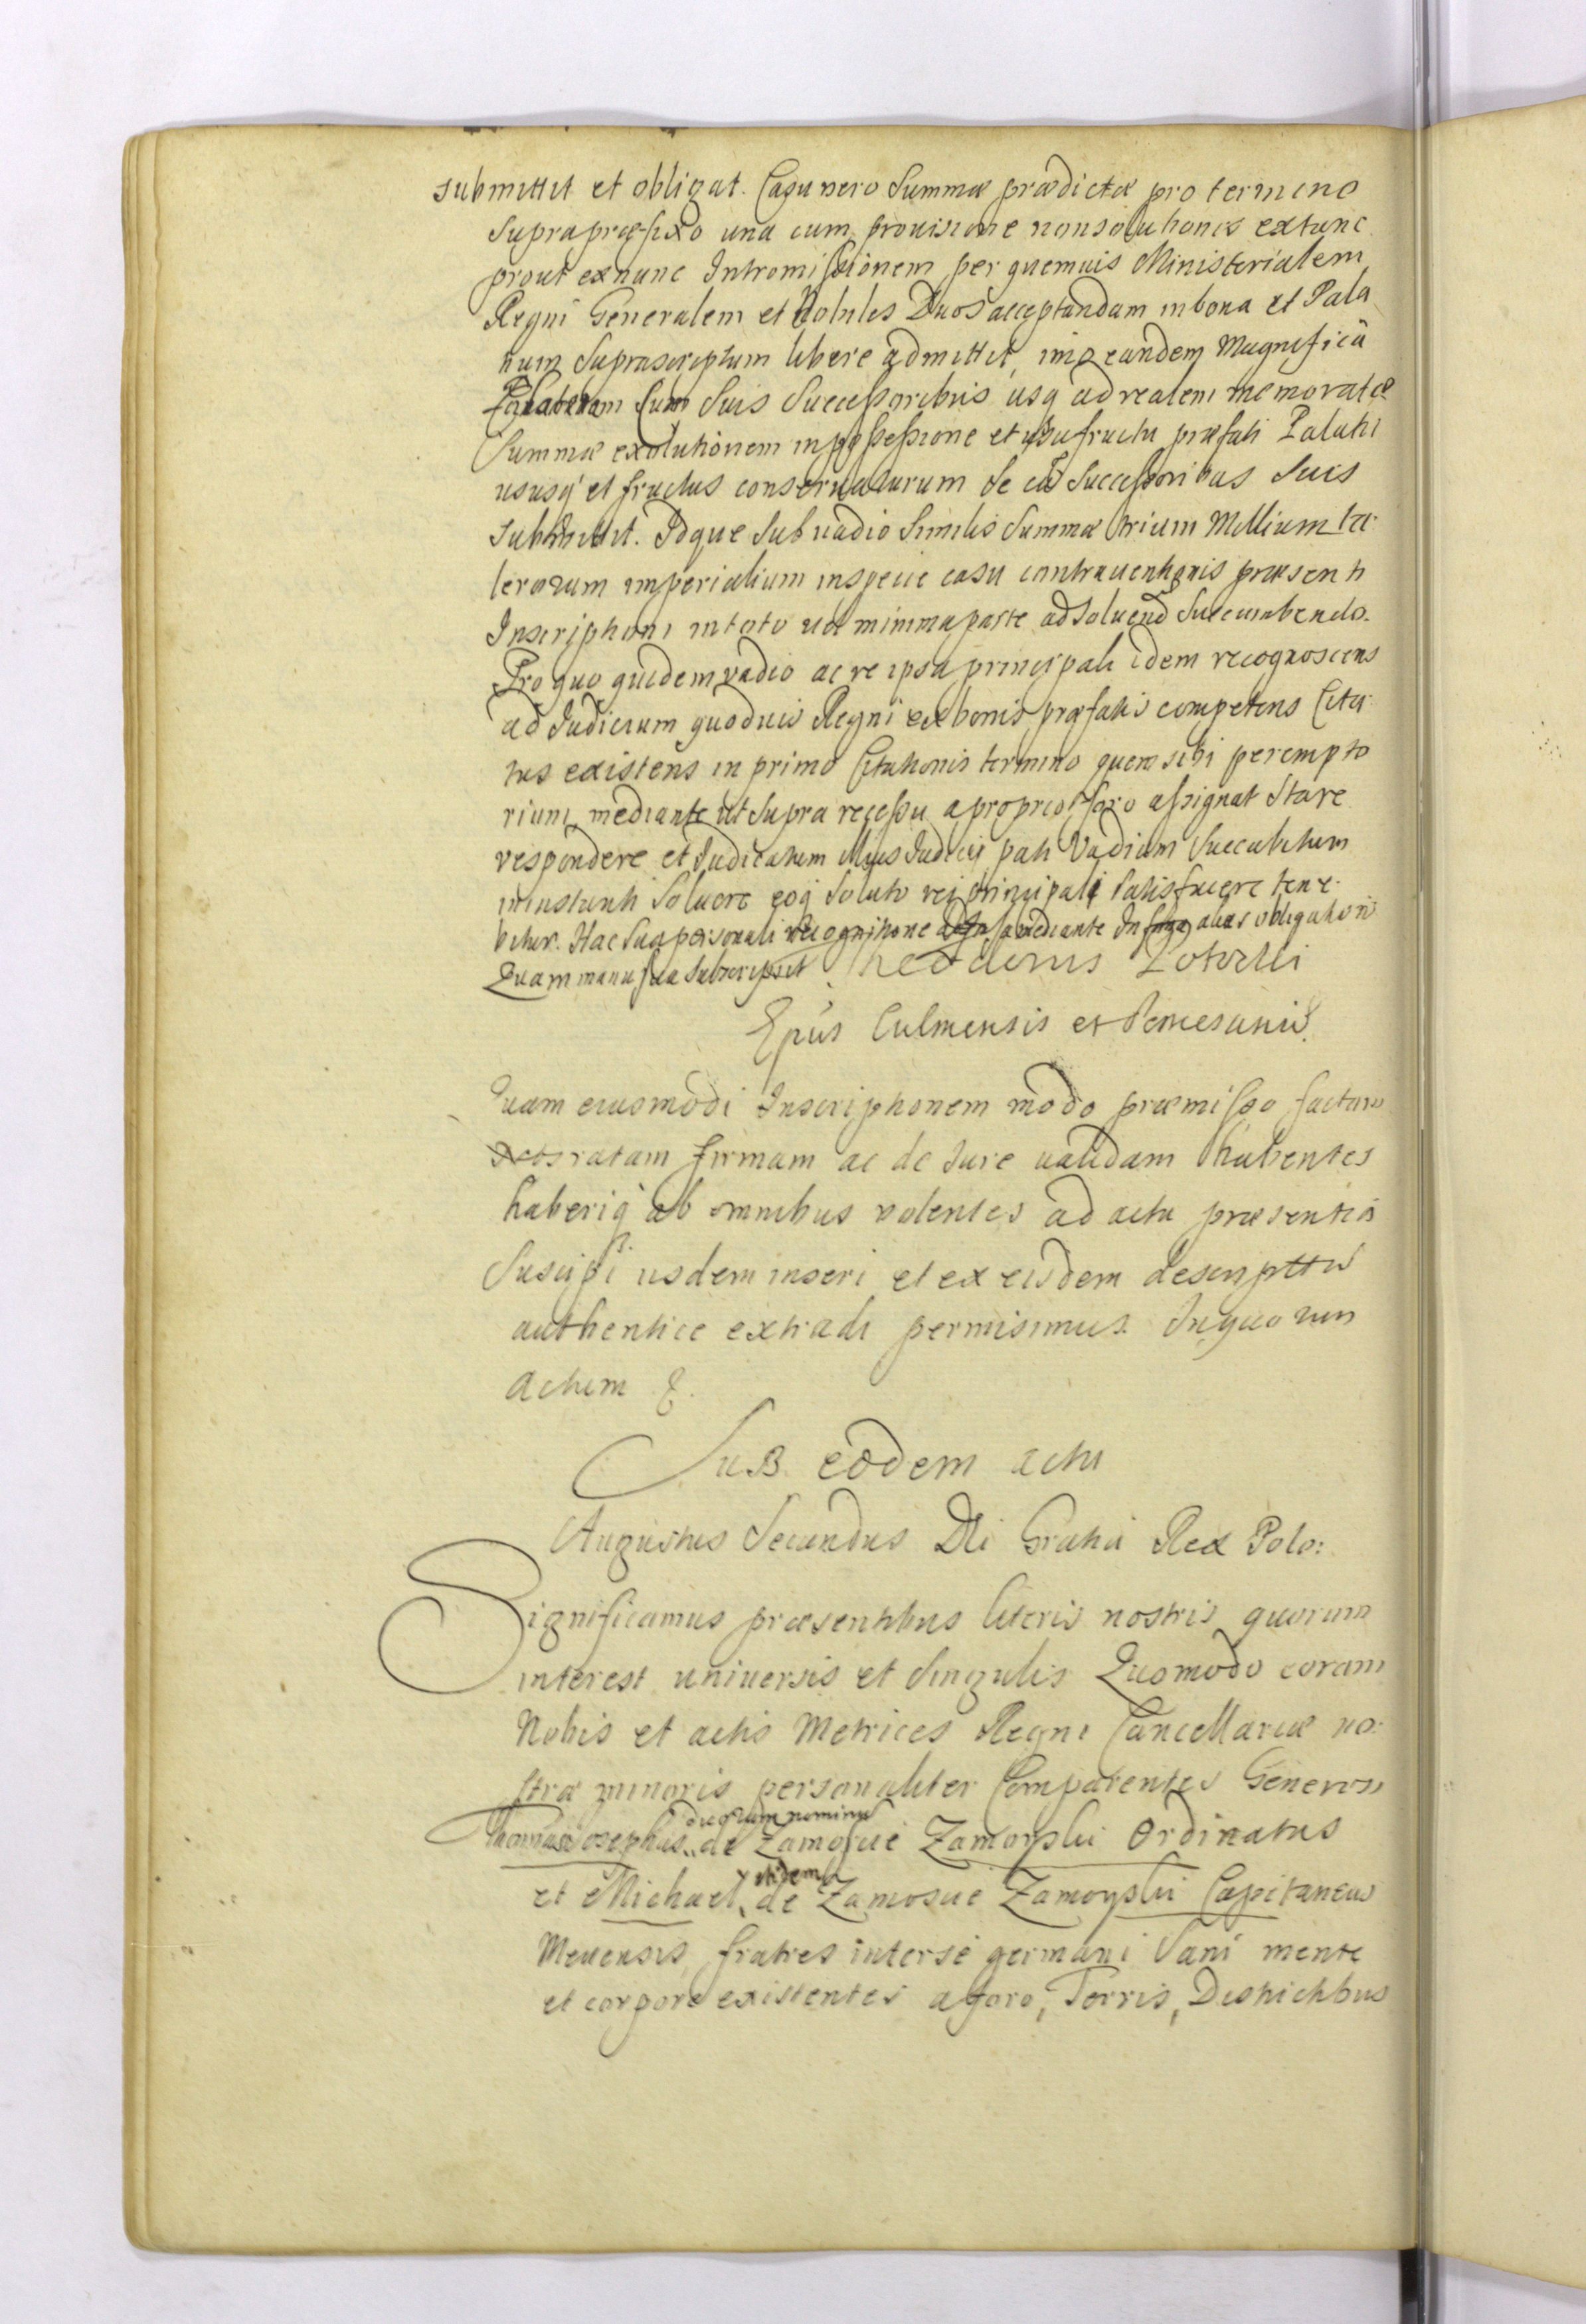 submittit et obligat. Casu vero Summæ prædictæ pro termino
supra præfixo una cum provisione non solutionis extunc
prout exnunc Intromissionem per quemvis Ministerialem
Regni Generalem et Nobiles Duos acceptandam in bona et Pala
tium Suprascriptum libere admittet, imo eandem Magnificã
cum Suis Successoribus usq ad realem memoratæ
Summæ exolutionem in possessione et usufructu præfati Palatii
ususq et fructus conservaturum Se cũ Successoribus Suis
submittit. Idque Sub vadio Similis Summæ trium Millium ta:
lerorum imperialium in specie casu contraventionis præsenti
Inscriptioni in toto vel minima parte ad Solvend Succumbendo.
Pro quo quidem vadio ac re ipsa principali idem recognoscens
ad Judicium quodvis Regni ex bonis præfatis competens Cita:
tus existens in primo Citationis termino quem sibi perempto
rium, mediante ut Supra recessu a proprio foro assignat Stare
respondere et Judicatum illius Judicij pati Vadium Succubitum
in instanti Solvere eoq Soluto rei principali Satisfacere tene:
bitur. Hac Sua personali recognitione mediante alias obligationĩ
Quam manu sua Subscripsit. Theodorus Potocki
Epus Culmensis et Pomesaniæ.
Quam eiusmodi Inscriptionem modo præmisso factam
ratam firmam ac de Jure validam habentes
haberiq ab omnibus volentes ad acta præsentia
Suscipi iisdem inseri et ex eisdem descriptis
authentice extradi permisimus. In quorum
Actum &.
Sub eodem actu
Augustus Secundus Dei Gratia Rex Polo:
Significamus præsentibus literis nostris quorum
interest universis et Singulis Quomodo coram
Nobis et actis Metrices Regni Cancellariæ no:
stræ minoris personaliter Comparentes Generosi
duorum nominũ
Thomas Josephus de Zamoscie Zamoyski Ordinatus
itidem
et Michael de Zamoscie Zamoyski Capitaneus
Mevensis, fratres inter se germani Sani mente
et corpore existentes a foro, Terris, Districtibus